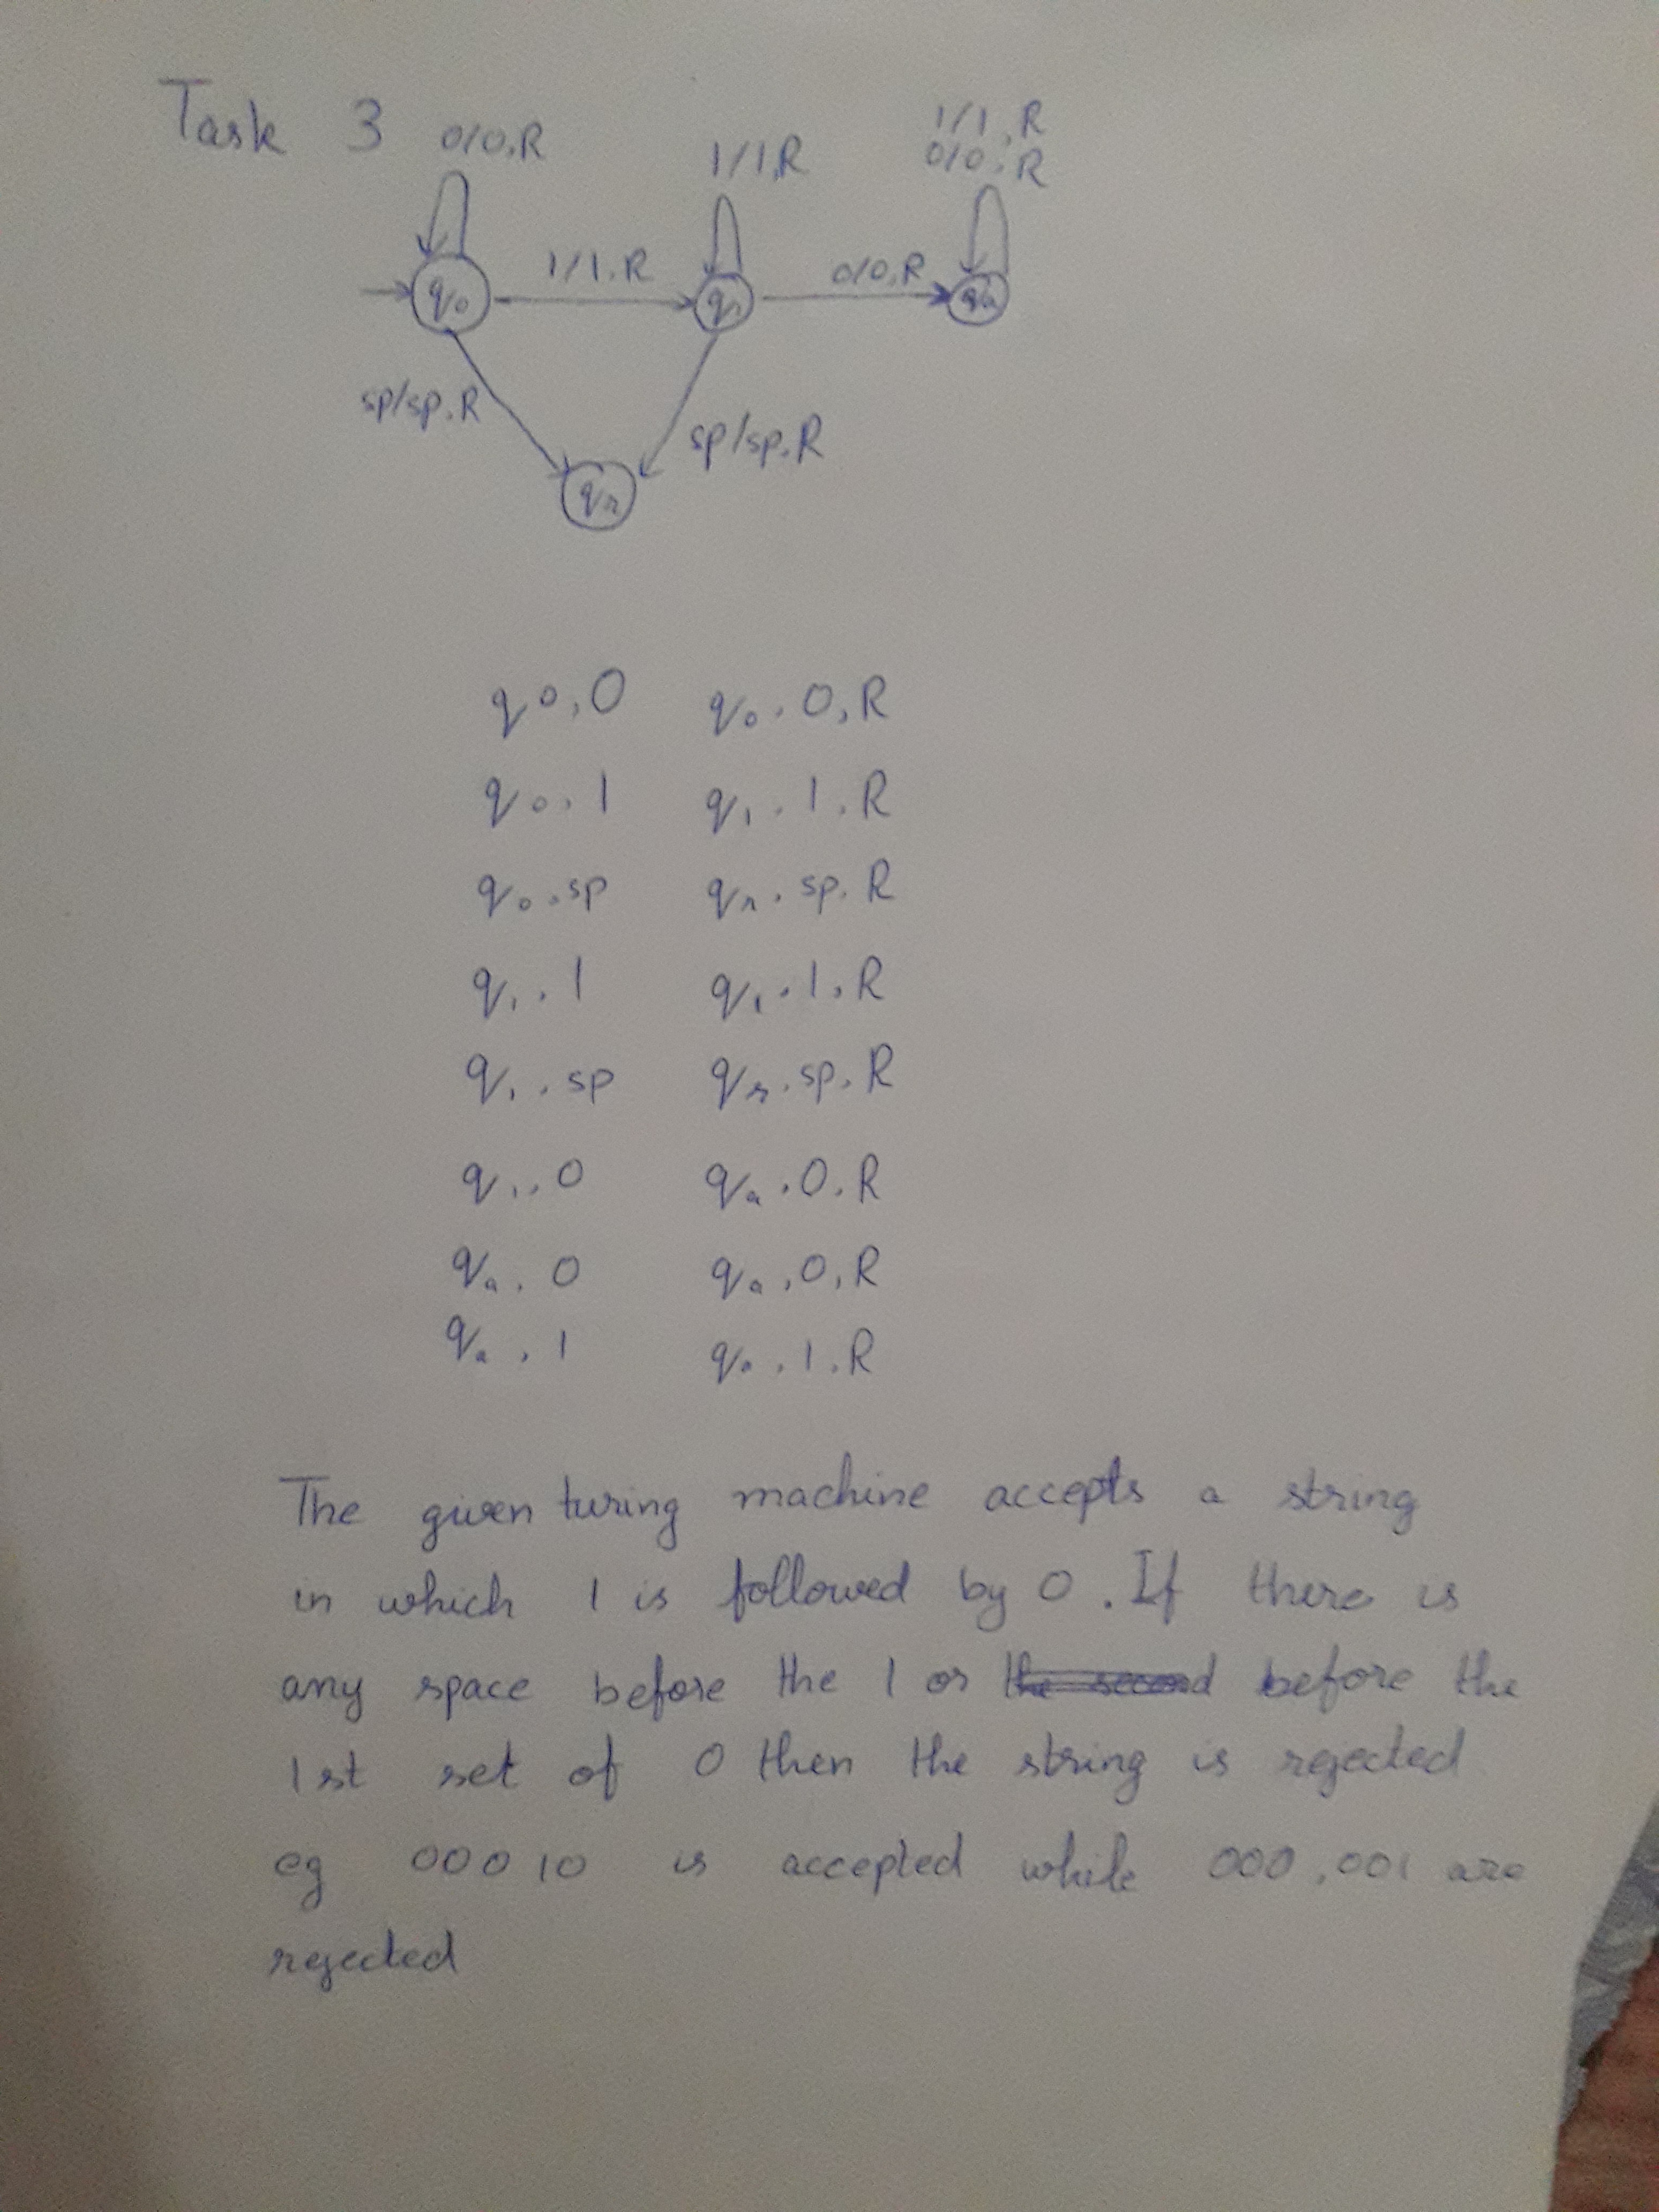 Task 3
0/0,R
1/1,R
1/1,R
0/0,R
q0
1/1.R
q1
0/0,R
qa
sp/sp.R
sp/sp.R
qr
q0,0 q0.0,R
q0.1 q1.1.R
q0.sp qr.sp.R
q1.1 q1.1.R
q1.sp qr.sp.R
q1.0 qa.0.R
qa.0 qa,0,R
qa,1 qa,1.R
The given turing machine accepts a string
in which 1 is followed by 0. If there is
any space before the 1 or the second before the
1st set of 0 then the string is rejected
eg 00010 is accepted while 000,001 are
rejected